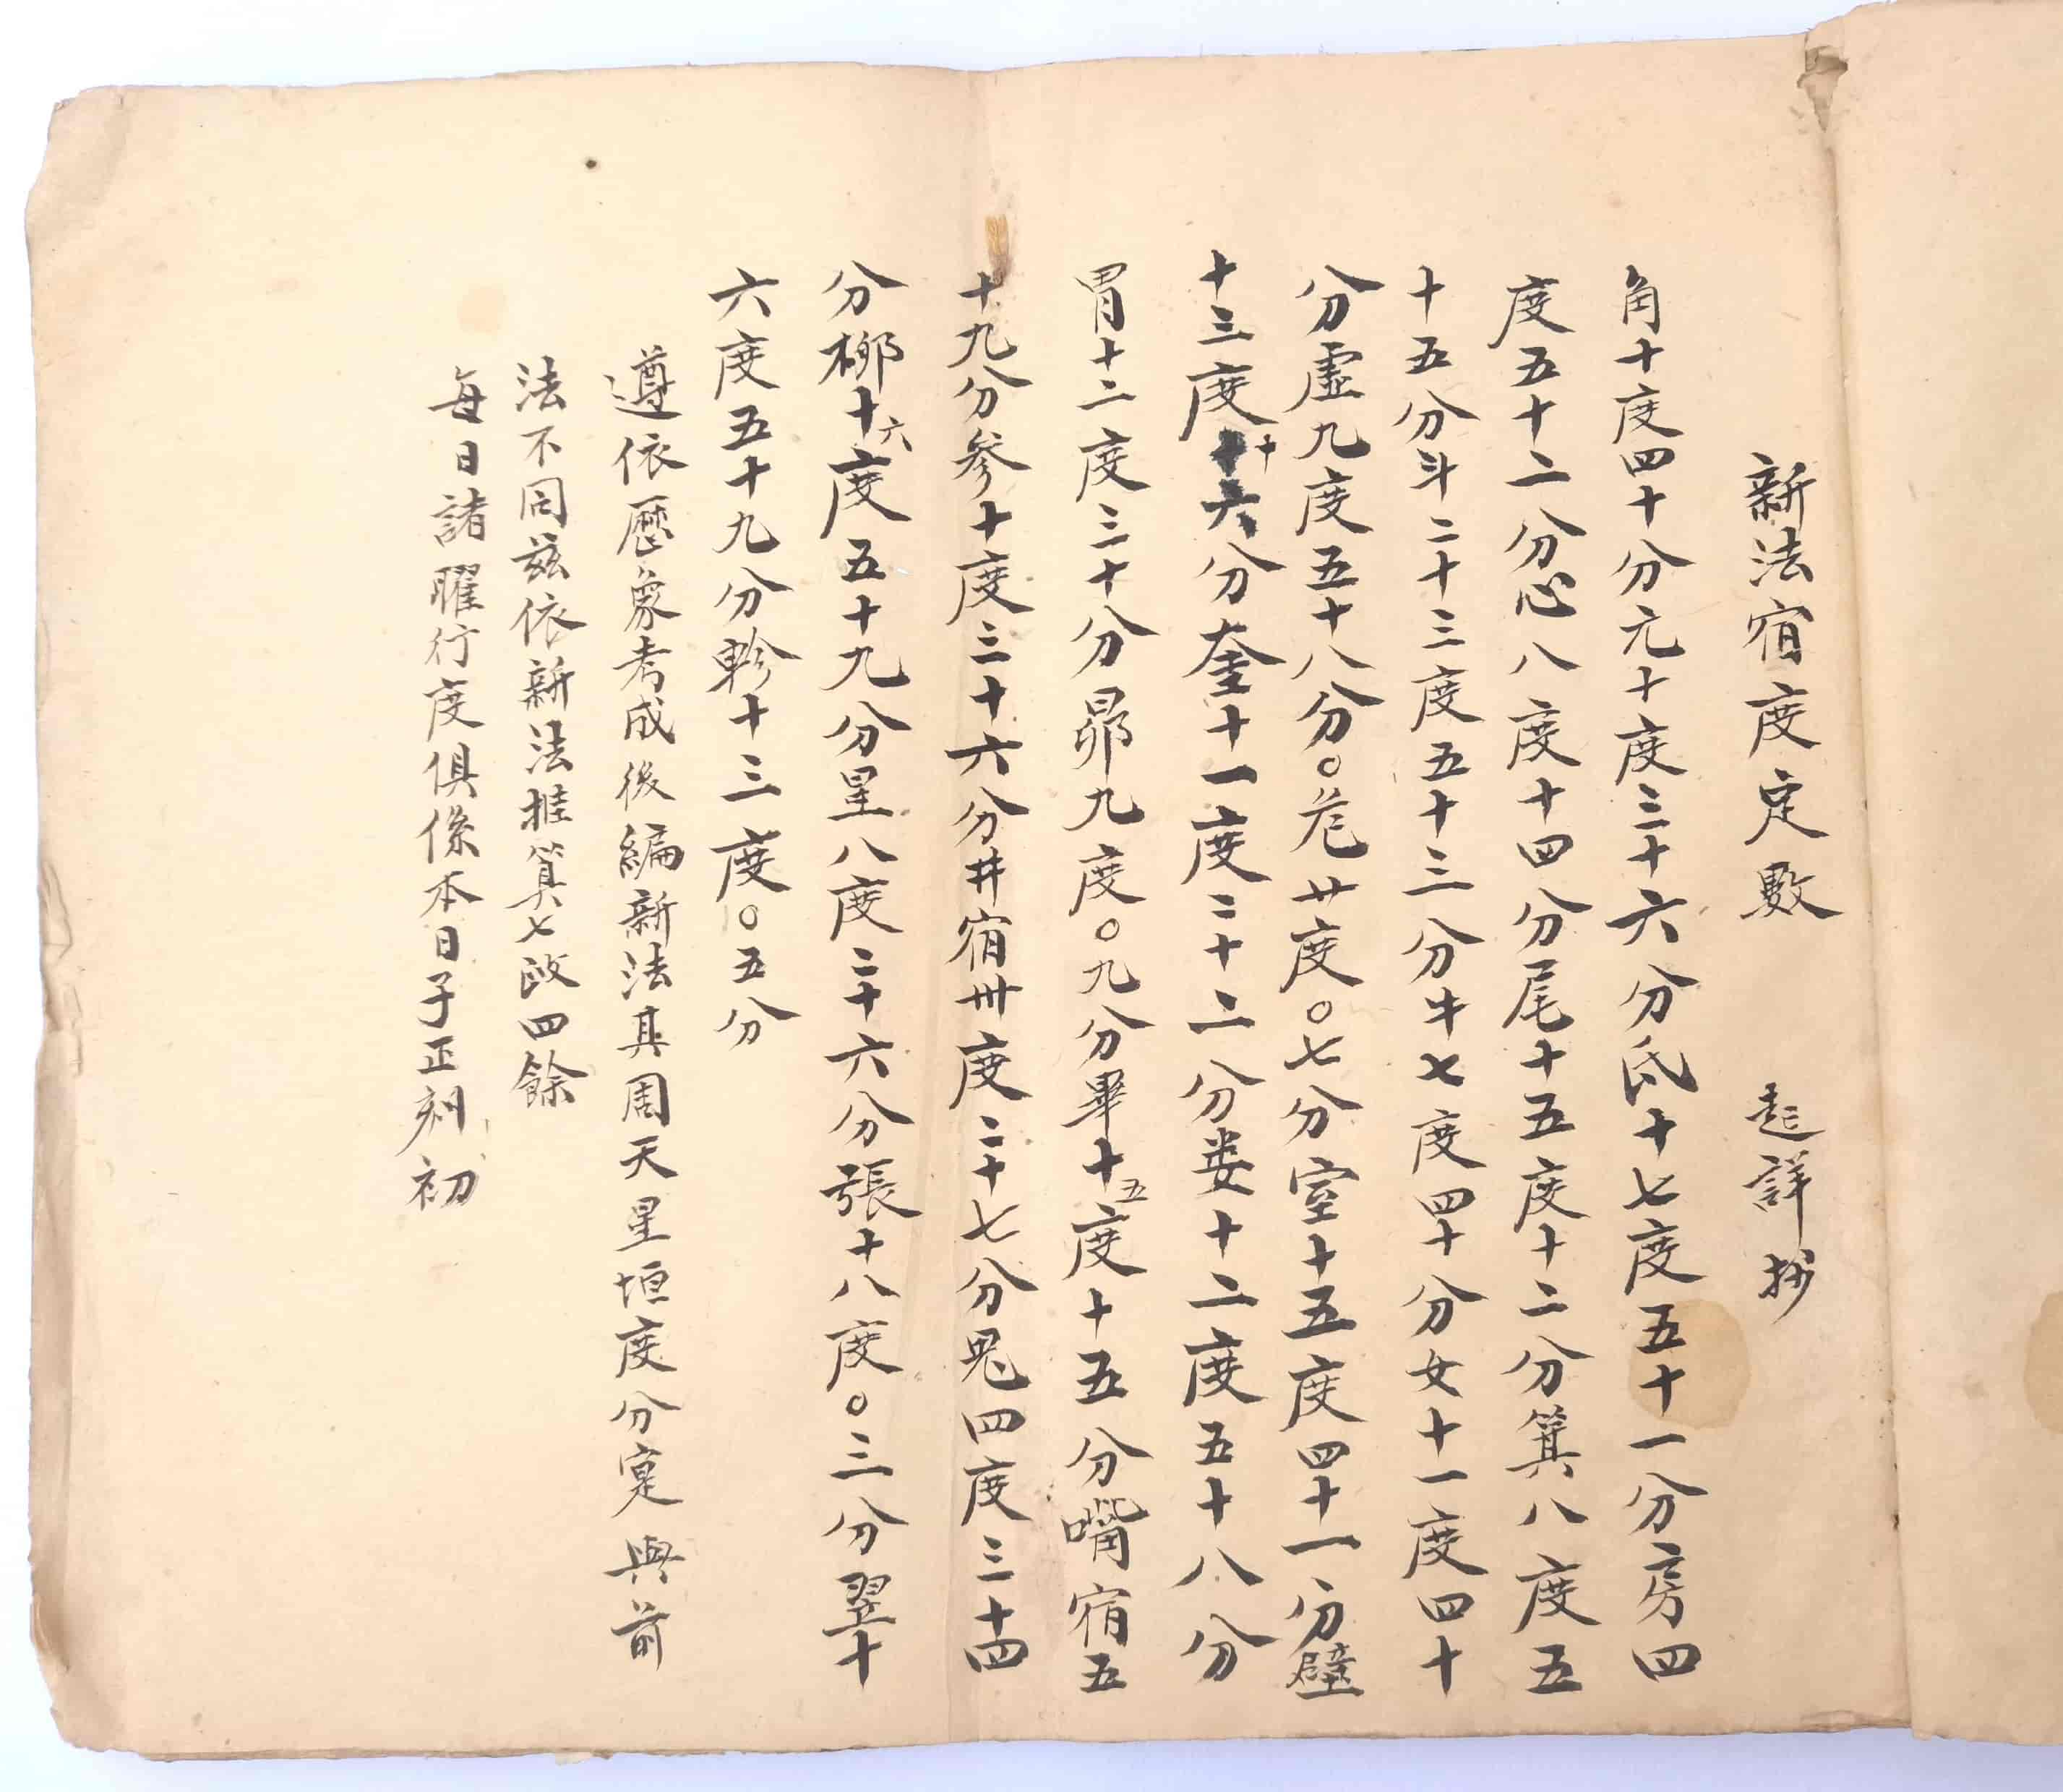 新法宿度定數 起詳抄
角十度四十分亢十度三十六分氐十七度五十一分房四
度五十二分心八度十四分尾十五度十二分箕八度五
十五分斗二十三度五十三分牛七度四十分女十一度四十
分虛九度五十八分。危廿度。七分室十五度四十一分壁
十三度十六分奎十一度二十二分娄十二度五十八分
胃十二度三十分昴九度。九分畢十五度十五分嘴宿五
十九分参十度三十六分井宿卅度二十七分鬼四度三十四
分柳十六度五十九分星八度二十六分張十八度。三分翌十
六度五十九分軫十三度。五分
遵依歷象考成後編新法其周天星垣度分寔與前
法不同兹依新法推算七政四餘
每日諸曜行度俱係本日子正刻初